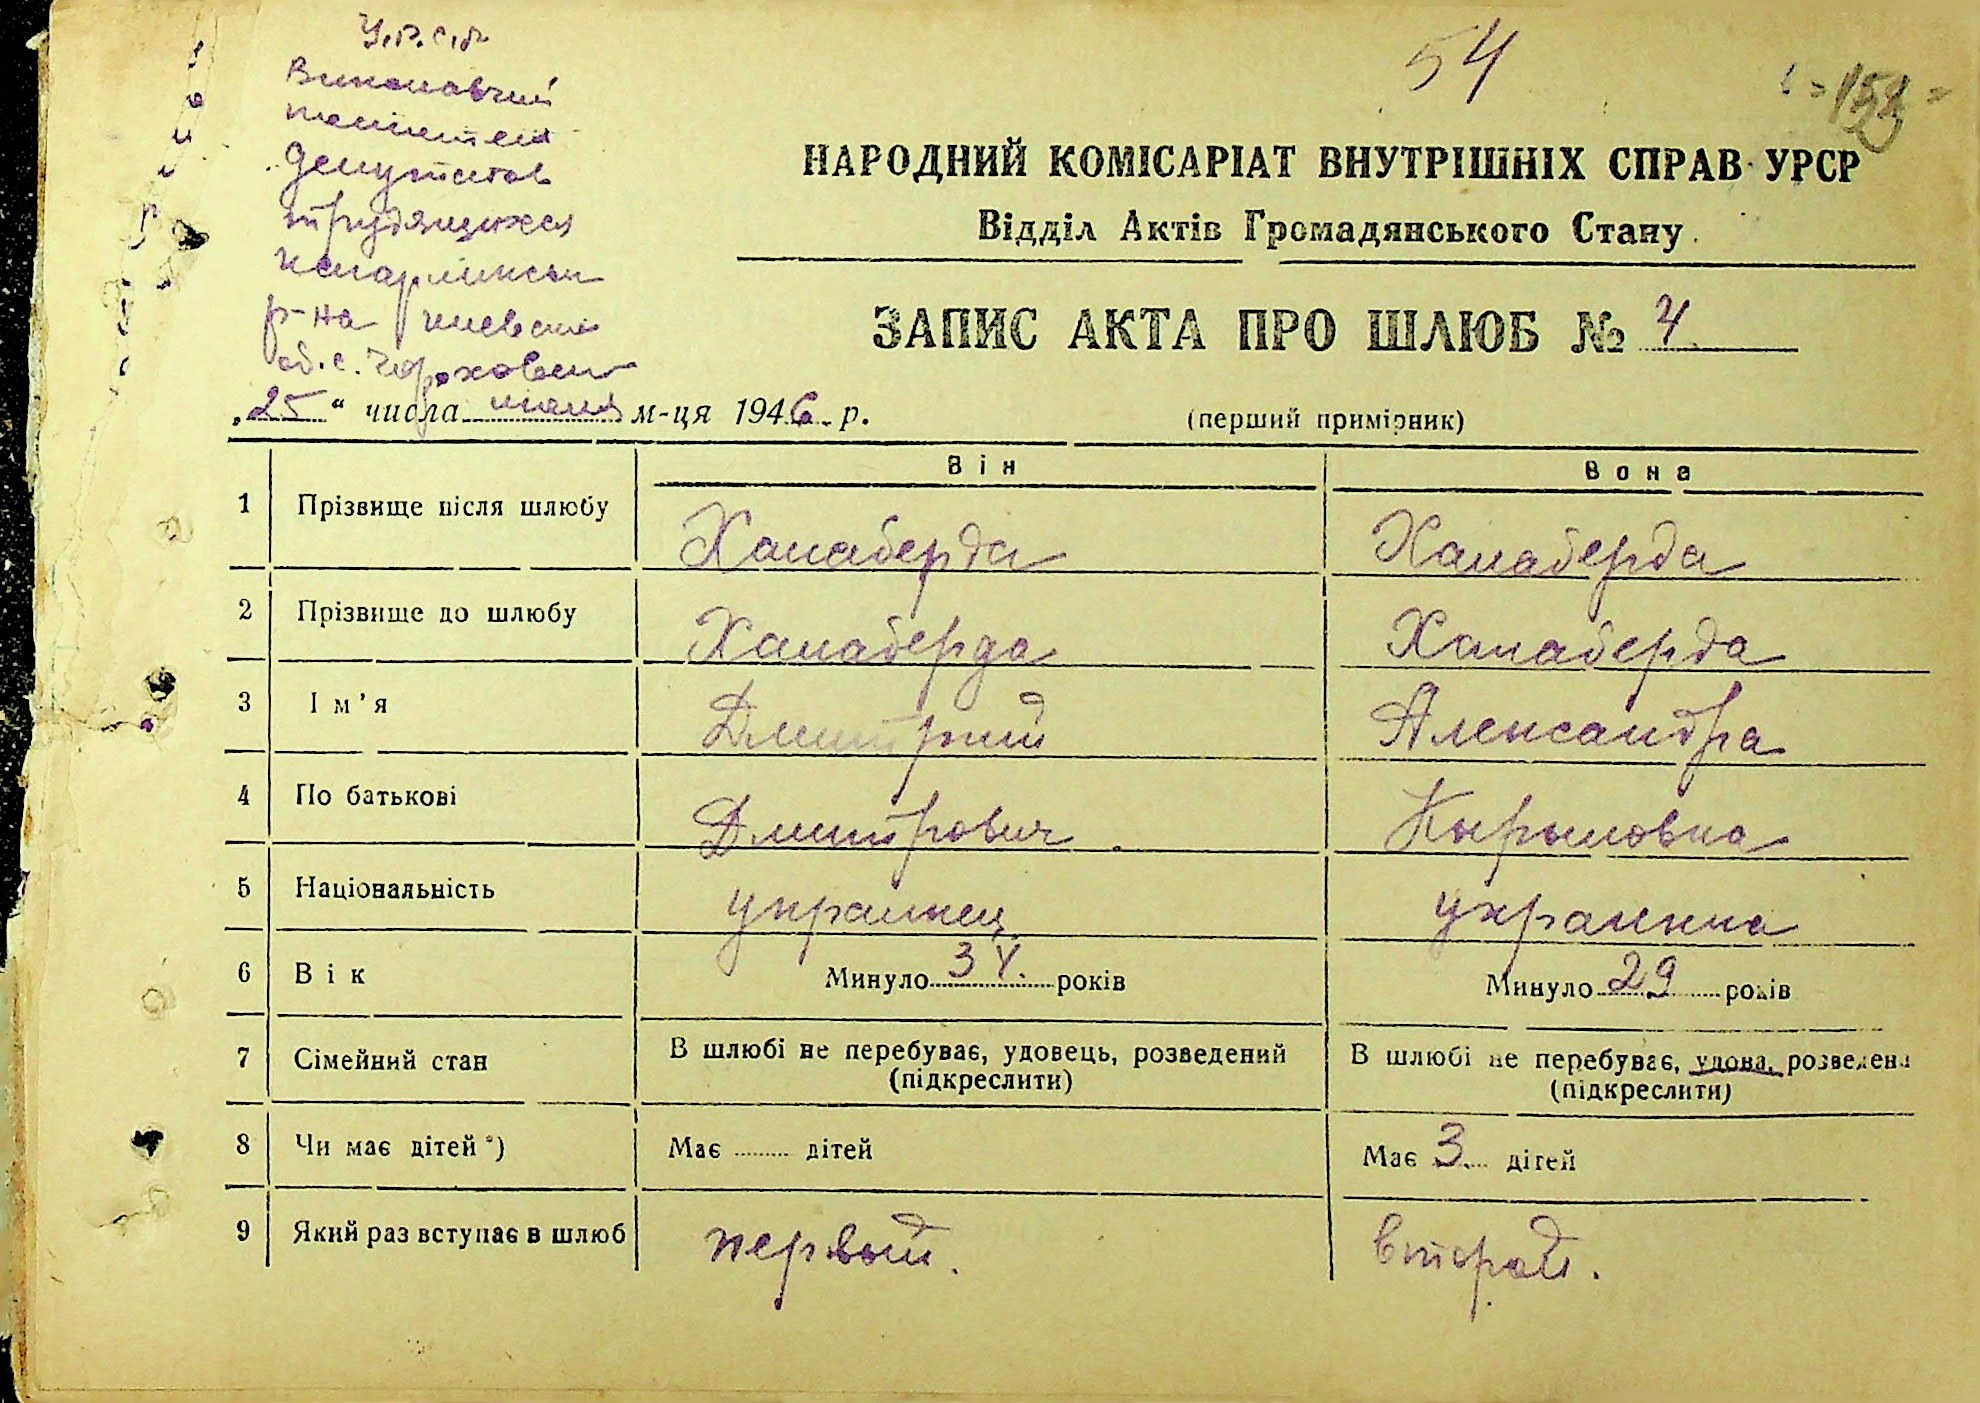 У.Р.С.Р.
Виконавчий
комитет
депутатов
трудящихся
Кагарлинськ
р-на Киевськ
об. с. Черняховск
54
НАРОДНИЙ КОМІСАРІАТ ВНУТРІШНІХ СПРАВ УРСР
Відділ Актів Громадянського Стану
ЗАПИС АКТА ПРО ШЛЮБ № 4
„25“ числа м-ця 1946 р.
(перший примірник)
Він Вона
1 Прізвище після шлюбу Халаберда Халаберда
2 Прізвище до шлюбу Халаберда Халаберда
3 Ім’я Дмитрий Александра
4 По батькові Дмитрович Кырыловна
5 Національність украинец украинка
6 Вік Минуло 34 років Минуло 29 років
7 Сімейний стан В шлюбі не перебуває, удовець, розведений (підкреслити) В шлюбі не перебуває, удова, розведена (підкреслити)
8 Чи має дітей*) Має ......... дітей Має 3 дітей
9 Який раз вступає в шлюб первый. второй.